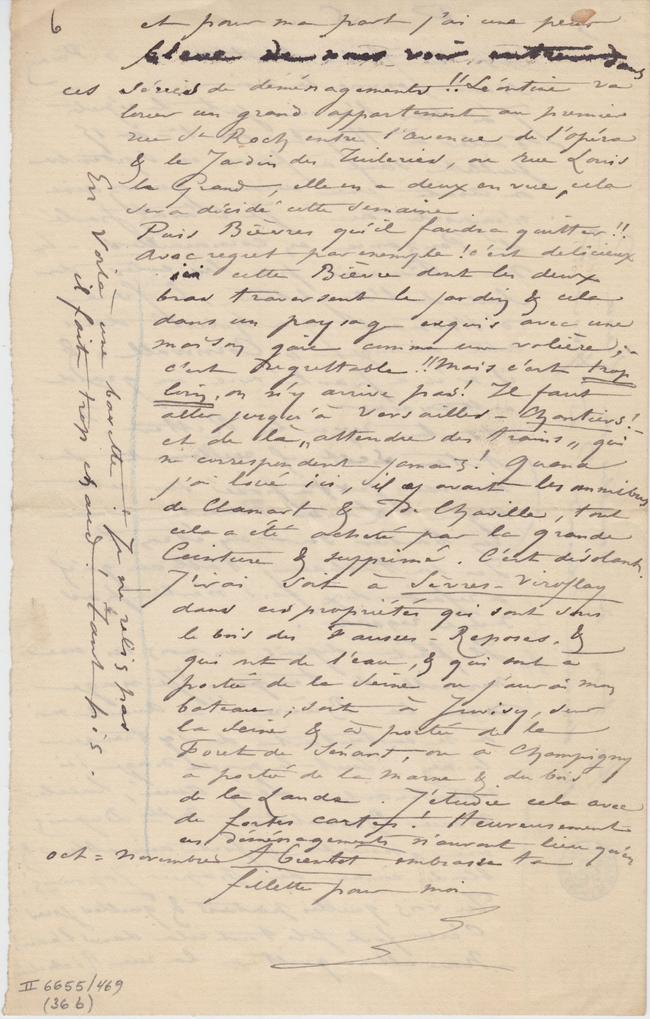 6
et pour ma part j'ai une peur
bleue de vous voir entrer dans
ces séries de déménagements !! Léontine va
louer un grand appartement au premier
rue St Roch entre l'avenue de l'opéra
& le Jardin des Tuileries, ou rue Louis
le Grand, elle en a deux en vue, cela
sera décidé cette semaine.
Puis Bièvres qu'il faudra quitter !!
avec regret par exemple ! c'est délicieux
ici cette Bièvre dont les deux
bras traversent le jardin & cela
dans un paysage exquis avec une
maison gaie comme une volière,
c'est regrettable !! Mais c'est trop
loin, on n'y arrive pas ! Il faut
aller jusqu'à Versailles - Chantiers ! -
et de là "attendre des trains" qui
ne correspondent jamais ! Quand
j'ai loué ici, il y avait les omnibus
de Clamart & de Chaville, tout
cela a été acheté par la grande
Ceinture & supprimé. C'est désolant.
J'irai soit à Sèvres - Viroflay
dans ces propriétés qui sont sous
le bois des Fausses - Reposes, &
qui ont de l'eau, & qui sont à
portée de la Seine où j'aurai mon
bateau ; soit à Juvisy, sur
la Seine & à portée de la
Foret de Sénart, ou à Champigny
à portée de la Marne & du bois
de la Lande. J'étudie cela avec
de fortes cartes ! Heureusement
ces déménagements n'auront lieu qu'en
oct = novembre A bientot embrasse ta
fillette pour moi
En voilà une bavette ! Je ne relis pas
il fait trop chaud ! Tant pis.
II 6655/469
(36 b)